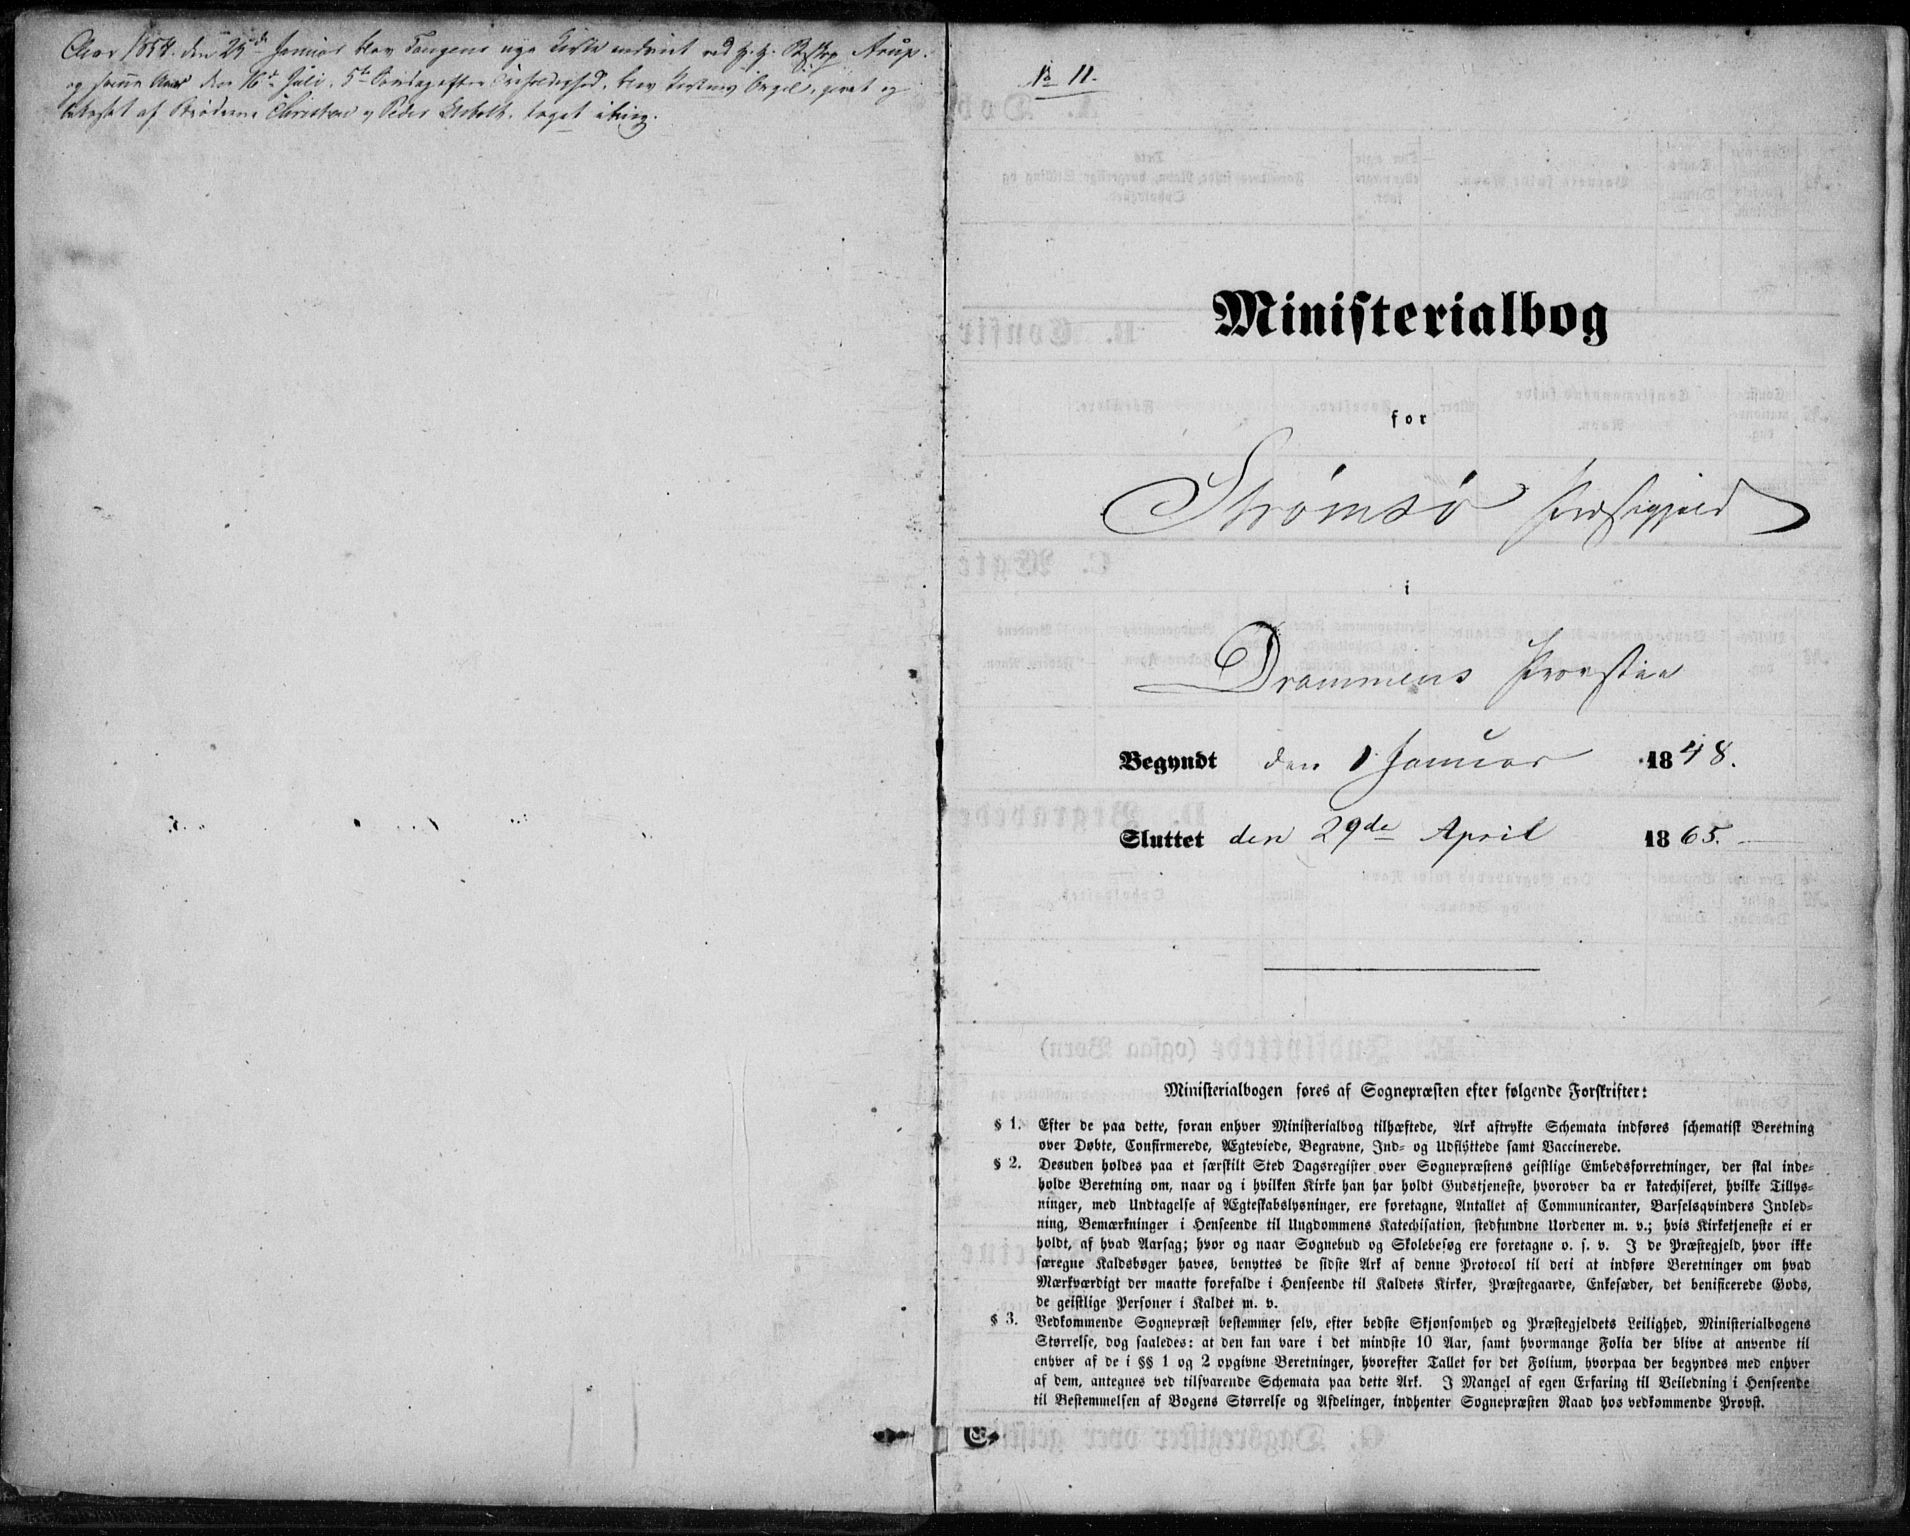 Aar 1854 den 25de Januar blev Tangens nye Kirke indviet ved H. H. Biskop Arup.
og samme Aar den 16de Juli, 5te Søndag efter Trefoldighed, blev Kirkens Orgel, givet og
bekostet af Brødrene Christen og Peder taget i brug.
No 11.
Ministerialbog
for
Strømsø Præstegjeld
i
Drammens Provstie
Begyndt den 1 Januar 1848.
Sluttet den 29de April 1865.
Ministerialbogen føres af Sognepræsten efter følgende Forskrifter:
§ 1. Efter de paa dette, foran enhver Ministerialbog tilhæftede, Ark aftrykte Schemata indføres schematisk Beretning
over Døbte, Confirmerede, Ægteviede, Begravne, Ind- og Udflyttede samt Vaccinerede.
§ 2. Desuden holdes paa et særskilt Sted Dagsregister over Sognepræstens geistlige Embedsforretninger, der skal inde-
holde Beretning om, naar og i hvilken Kirke han har holdt Gudstjeneste, hvorover da er katechiseret, hvilke Tillys-
ninger, med Undtagelse af Ægteskabslysninger, ere foretagne, Antallet af Communicanter, Barselsqvinders Indled-
ning, Bemærkninger i Henseende til Ungdommens Katechisation, stedfundne Uordener m. v.; hvis Kirketjeneste ei er
holdt, af hvad Aarsag; hvor og naar Sognebud og Skolebesøg ere foretagne o. s. v. I de Præstegjeld, hvor ikke
særegne Kaldsbøger haves, benyttes de sidste Ark af denne Protocol til deri at indføre Beretninger om hvad
Mærkværdigt der maatte forefalde i Henseende til Kaldets Kirker, Præstegaarde, Enkesæder, det benificerede Gods,
de geistlige Personer i Kaldet m. v.
§ 3. Vedkommende Sognepræst bestemmer selv, efter bedste Skjønsomhed og Præstegjeldets Leilighed, Ministerialbogens
Størrelse, dog saaledes: at den kan vare i det mindste 10 Aar, samt hvormange Folia der blive at anvende til
enhver af de i §§ 1 og 2 opgivne Beretninger, hvorefter Tallet for det Folium, hvorpaa der begyndes med enhver
af dem, antegnes ved tilsvarende Schemata paa dette Ark. I Mangel af egen Erfaring til Veiledning i Henseende
til Bestemmelsen af Bogens Størrelse og Afdelinger, indhenter Sognepræsten Raad hos vedkommende Provst.